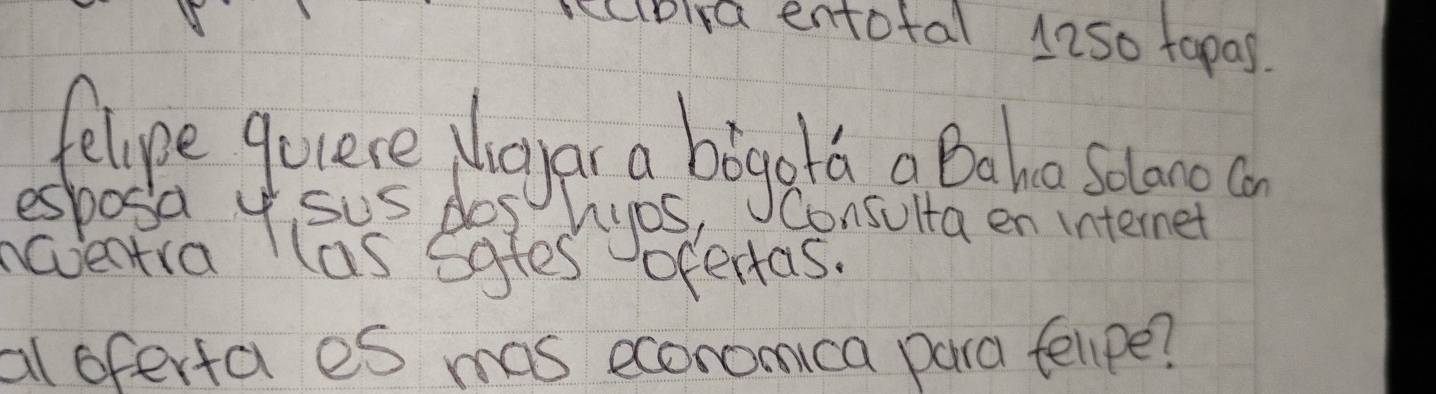 entotal 1250 tapas.
felipe quiere Viajar a bogotá a Bahia Solano Con
esposa y sus dos hijos, Consulta en internet
ncuentra las sgtes ofertas.
al oferta es mas economica para felipe?